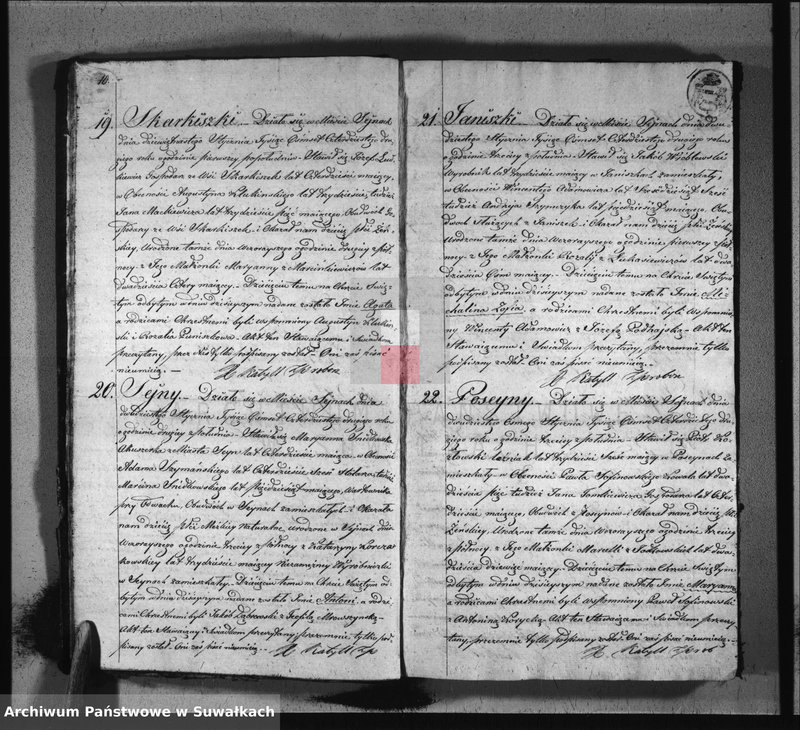 19. Skarkiszki. Działo się w Mieście Sejnach
dnia dziewiętnastego Stycznia Tysiąc Ośmset Czterdziestego dru-
giego roku o godzinie pierwszej popołudniu. Stawił się Józef
Gospodarz ze Wsi Skarkiszek lat Czterdzieści mający,
w Obecności Augustyna lat trzydzieści, tudzież
Jana Mackiewicza lat trzydzieści pięć mającego, Obudwóch Go-
spodarzy ze Wsi Skarkiszek, i Okazał nam dziecię płci Żeń-
skiej, Urodzone tamże dnia wczorayszego o godzinie drugiey z pół-
nocy, z Jego Małżonki Maryanny z Marcinkiewiczów lat
dwadzieścia Cztery mającey. Dziecięciu temu na Chrzcie Świę-
tym odbytym w dniu dzisieyszym nadane zostało Imie Agata
a rodzicami Chrzestnemi byli wspomniony Augustyn
i Rozalia Akt ten Stawaiącemu i Świadkom
przeczytany, przez Nas tylko podpisany został. Oni zaś pisać
nieumieią.
X Katyll
20. Sejny. Działo się w Mieście Sejnach dnia
dwudziestego Stycznia Tysiąc Ośmset Czterdziestego drugiego roku
o godzinie drugiey z południa. Stawiła się Maryanna
Akuszerka z Miasta Sejn lat Czterdzieści mająca, w Obecności
Adama Szymańskiego lat Czterdzieści Sześć tudzież
Marcina lat Pięćdziesiąt mającego,
Obudwóch w Sejnach zamieszkałych i Okazała
nam dziecię płci Męskiey Naturalne, urodzone w Sejnach dnia
wczorayszego o godzinie trzeciey z północy z Katarzyny
lat trzydzieści mającey Niezamężney Wyrobnicy
w Sejnach zamieszkałey. Dziecięciu temu na Chrzcie Świętym od-
bytym w dniu dzisieyszym nadane zostało Imie Antoni, a rodzi-
cami Chrzestnemi byli Jakób i Teofila
Akt ten Stawaiącey i Świadkom przeczytany, przezemnie tylko pod-
pisany został. Oni zaś pisać nieumieią.
X Katyll
21. Janiszki. Działo się w Mieście Sejnach dnia dwu-
dziestego Stycznia Tysiąc Ośmset Czterdziestego drugiego roku
o godzinie trzeciey z południa. Stawił się Jakób Wróblewski
Wyrobnik lat trzydzieści mający w Janiszkach zamieszkały,
w Obecności Wincentego Adamowicza lat Sześćdziesiąt Sześć
tudzież Andrzeja lat pięćdziesiąt mającego, Obu-
dwóch Służących z Janiszek i Okazał nam dziecię płci Żeńskiey
Urodzone tamże dnia wczorayszego o godzinie pierwszey z pół-
nocy z Jego Małżonki Rozalii z Łukasiewiczów lat dwa-
dzieścia Ośm mającey. Dziecięciu temu na Chrzcie Świętym
odbytym w dniu dzisieyszym nadane zostało Imie Mi-
chalina Zofia, a rodzicami Chrzestnemi byli wspomnio-
ny Wincenty Adamowicz i Józefa Akt ten
Stawaiącemu i Świadkom przeczytany, przezemnie tylko
podpisany został. Oni zaś pisać nieumieią.
X Katyll
22. Poseyny. Działo się w Mieście Sejnach dnia
dwudziestego Ósmego Stycznia Tysiąc Ośmset Czterdziestego dru-
giego roku o godzinie trzeciey z południa. Stawił się Piotr
lat trzydzieści Sześć mający w Poseynach za-
mieszkały w Obecności Pawła lat dwa-
dzieścia pięć tudzież Jana lat Czter-
dzieści mającego, Obudwóch z Poseynów i Okazał nam dziecię płci
Żeńskiey, Urodzone tamże dnia wczorayszego o godzinie trzeciey
z północy z Jego Małżonki Marcelli z lat dwa-
dzieścia dziewięć mającey. Dziecięciu temu na Chrzcie Świętym
odbytym w dniu dzisieyszym nadane zostało Imie Maryanna
a rodzicami Chrzestnemi byli wspomniony Paweł
z Antoniną Akt ten Stawaiącemu i Świadkom przeczy-
tany, przezemnie tylko podpisany został. Oni zaś pisać nieumieią.
X Katyll
Archiwum Państwowe w Suwałkach